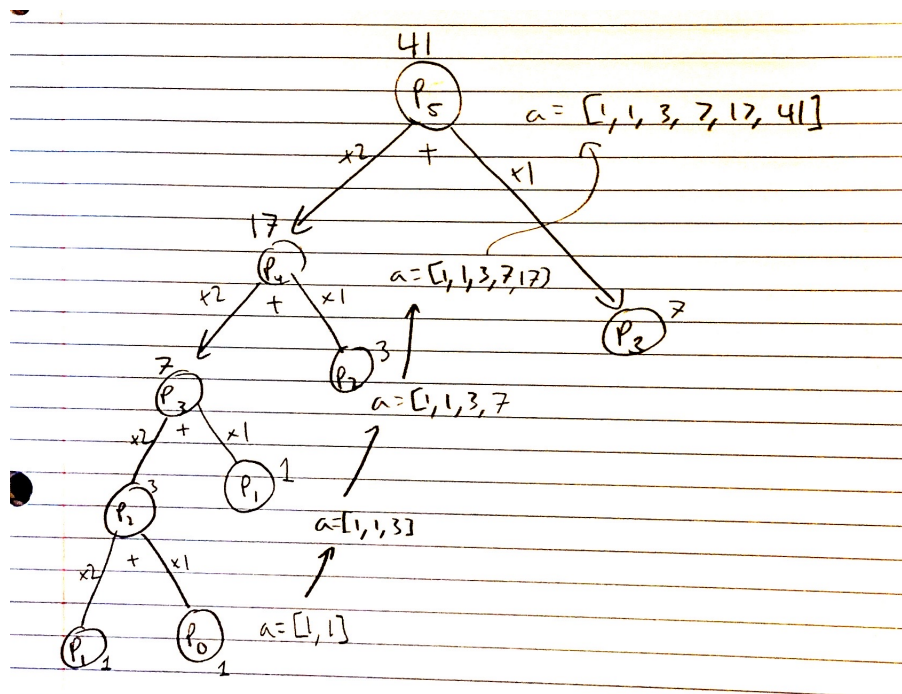 41
P5
a = [1, 1, 3, 7, 17, 41]
x2 + x1
17
P4
a=[1,1,3,7,17)
x2 + x1
P3 7
7
P3
P2 3
a=[1,1,3,7
x2 + x1
P2 3
P1 1
a=[1,1,3]
x2 + x1
P1 1
P0 1
a=[1,1]